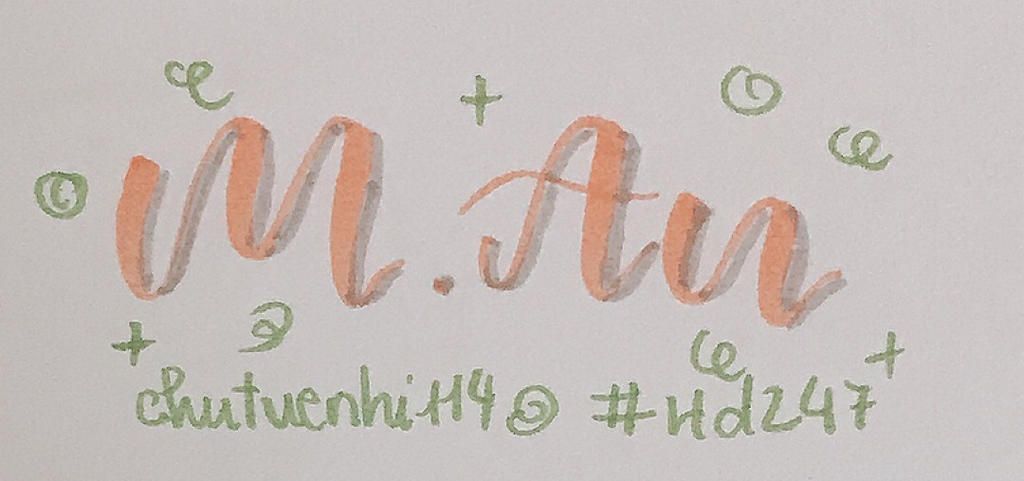 M.An
chutuenhi114 #Hd247